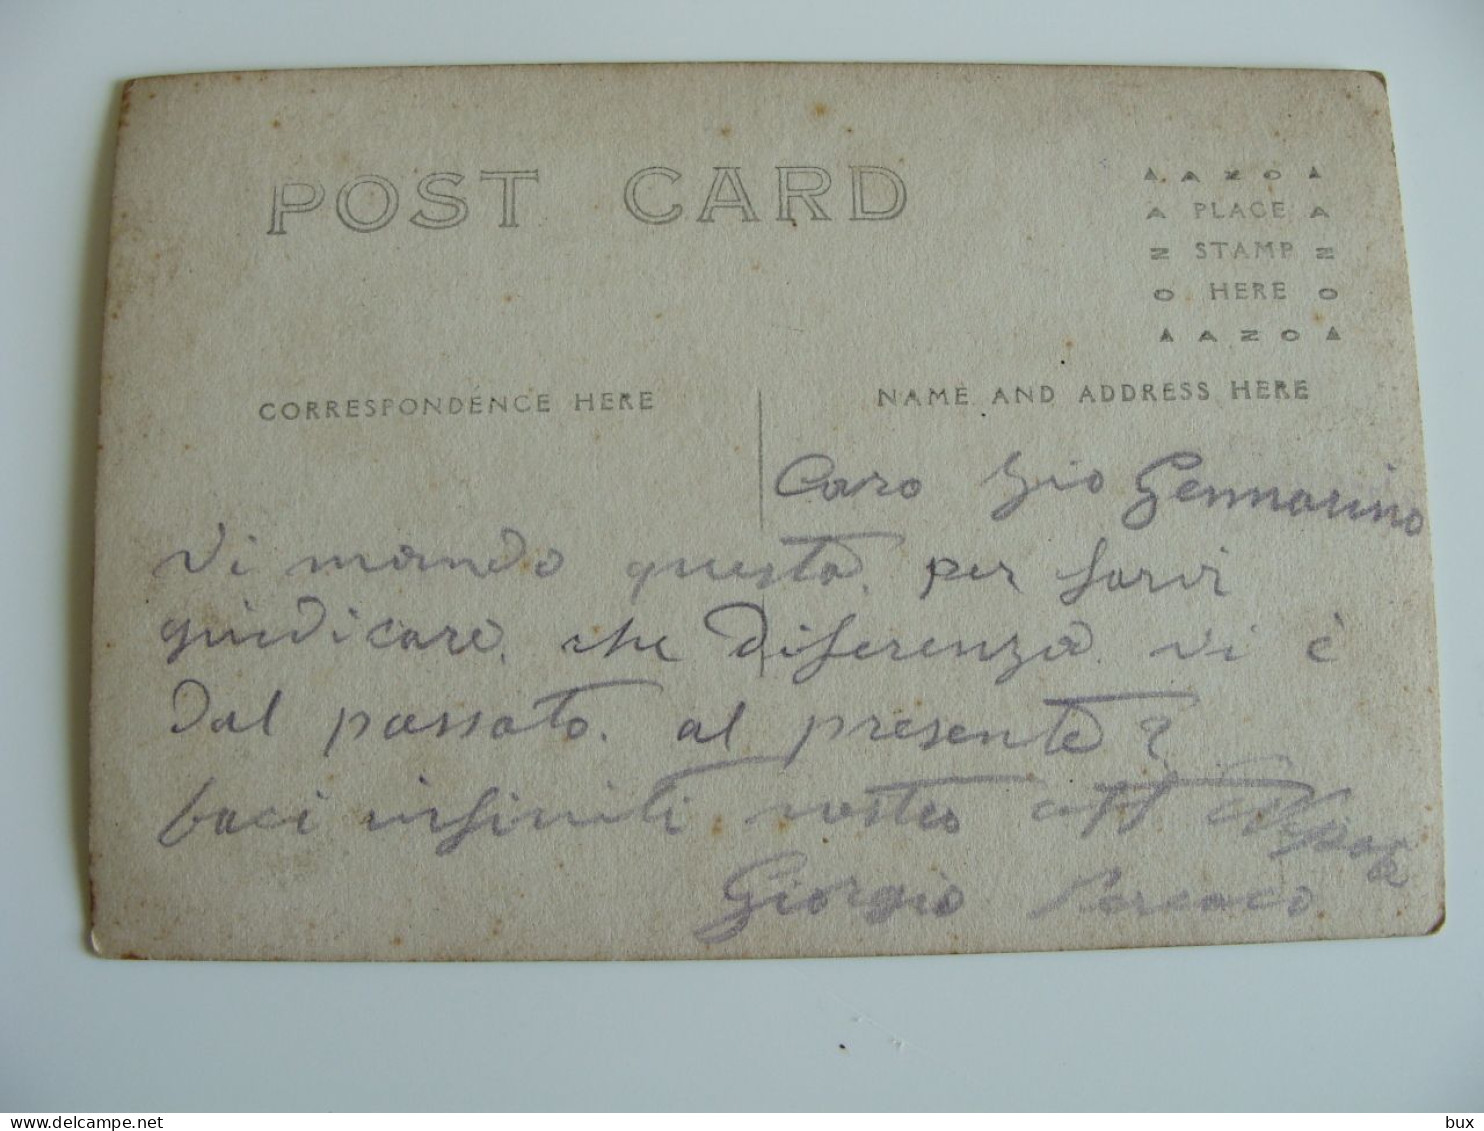 POST CARD
▲ AZO ▲
A PLACE A
Z STAMP Z
O HERE O
▲ AZO ▲
CORRESPONDENCE HERE
NAME AND ADDRESS HERE
Caro Zio Gennarino
Vi mando questa. per farvi
giudicare. che diferenza. vi è
dal passato. al presente?
baci infiniti vostro aff Nipote
Giorgio
delcampe.net
bux